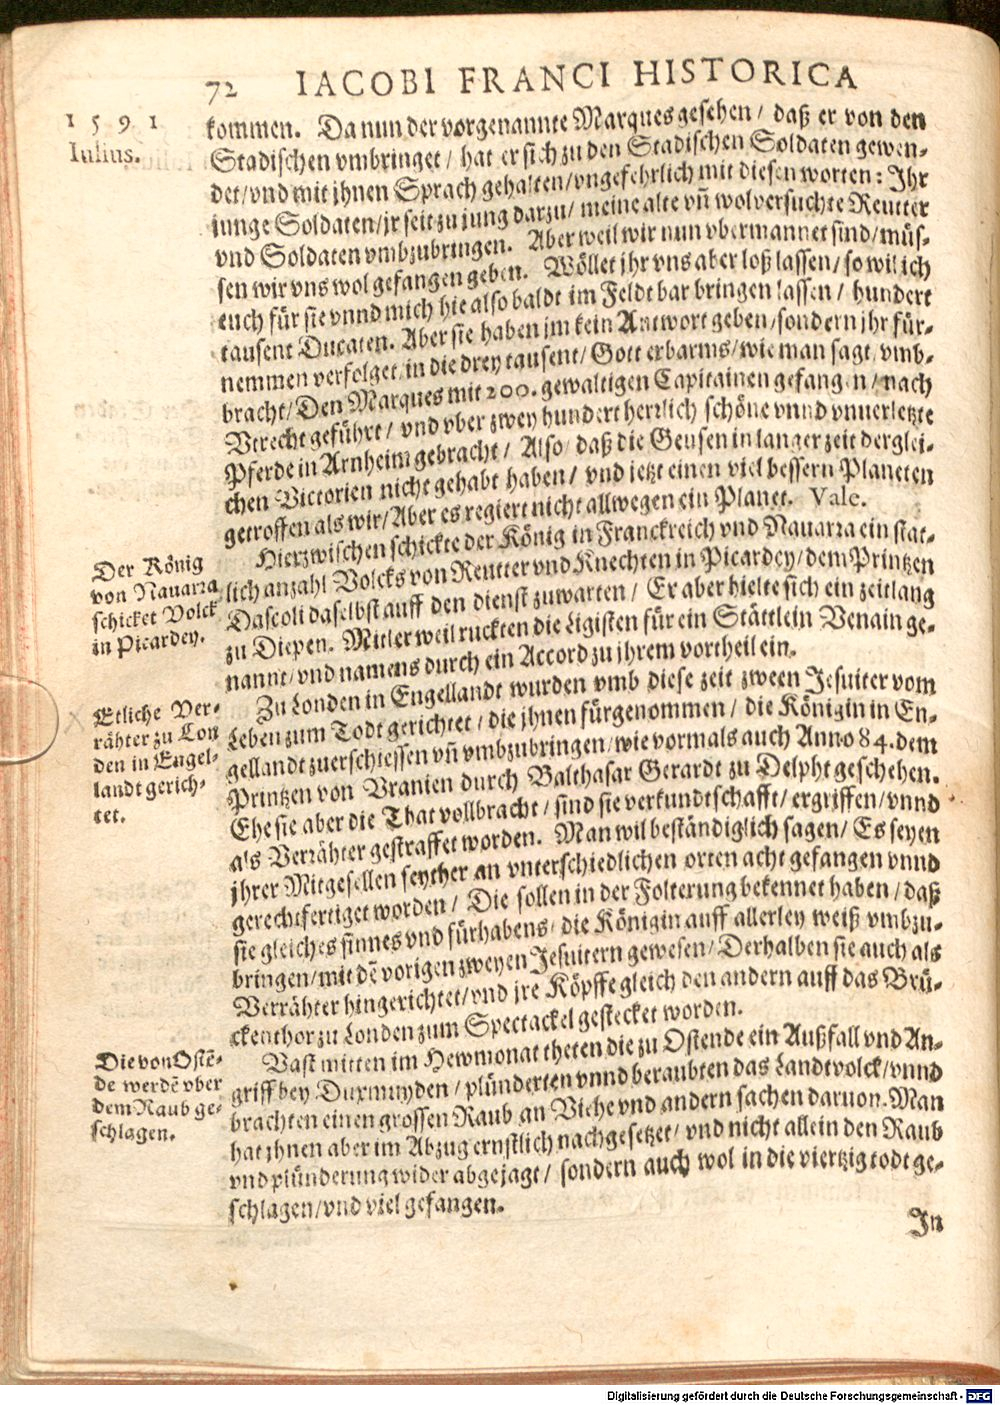 72 IACOBI FRANCI HISTORICA
1591
Iulius.
kommen. Da nun der vorgenannte Marques gesehen / daß er von den
Stadischen vmbringet / hat er sich zu den Stadischen Soldaten gewen-
det / vnd mit jhnen Sprach gehalten / vngefehrlich mit diesen worten: Ihr
junge Soldaten / jr seit zu jung darzu / meine alte vñ wolversuchte Reutter
vnd Soldaten vmbzubringen. Aber weil wir nun vbermannet sind / müs-
sen wir vns wol gefangen geben. Wöllet jhr vns aber loß lassen / so wil ich
euch für sie vnnd mich hie also baldt im Feldt bar bringen lassen / hundert
tausent Ducaten. Aber sie haben jm kein Antwort geben / sondern jhr für-
nemmen verfolget / in die drey tausent / Gott erbarms / wie man sagt / vmb-
bracht / Den Marques mit 200. gewaltigen Capitainen gefangen / nach
Vtrecht geführt / vnd vber zwey hundert herrlich schöne vnnd vnuerletzte
Pferde in Arnheim gebracht / Also / daß die Geusen in langer zeit derglei-
chen Victorien nicht gehabt haben / vnd jetzt einen viel bessern Planeten
getroffen als wir / Aber es regiert nicht allwegen ein Planet. Vale.
Der König
von Nauarra
schicket Volck
in Picardey.
Hierzwischen schickte der König in Franckreich vnd Nauarra ein stat-
lich anzahl Volcks von Reutter vnd Knechten in Picardey / dem Printzen
Dascoli daselbst auff den dienst zuwarten / Er aber hielte sich ein zeitlang
zu Diepen. Mitler weil ruckten die Ligisten für ein Stättlein Venain ge-
nannt / vnd namens durch ein Accord zu jhrem vortheil ein.
Etliche Ver-
rähter zu Lon
den in Engel-
landt gerich-
tet.
Zu Londen in Engellandt wurden vmb diese zeit zween Jesuiter vom
Leben zum Todt gerichtet / die jhnen fürgenommen / die Königin in En-
gellandt zuerschiessen vñ vmbzubringen / wie vormals auch Anno 84. dem
Printzen von Vranien durch Balthasar Gerardt zu Delpht geschehen.
Ehe sie aber die That vollbracht / sind sie verkundtschafft / ergriffen / vnnd
als Verrähter gestraffet worden. Man wil beständiglich sagen / Es seyen
jhrer Mitgesellen seyther an vnterschiedlichen orten acht gefangen vnnd
gerechtfertiget worden / Die sollen in der Folterung bekennet haben / daß
sie gleiches sinnes vnd fürhabens / die Königin auff allerley weiß vmbzu-
bringen / mit dẽ vorigen zweyen Jesuitern gewesen / Derhalben sie auch als
Verrähter hingerichtet / vnd jre Köpffe gleich den andern auff das Brü-
ckenthor zu Londen zum Spectackel gestecket worden.
Die von Ostẽ-
de werdẽ vber
dem Raub ge-
schlagen.
Vast mitten im Hewmonat theten die zu Ostende ein Außfall vnd An-
griff bey Duxmuyden / plünderten vnnd beraubten das Landtvolck / vnnd
brachten einen grossen Raub an Viehe vnd andern sachen daruon. Man
hat jhnen aber im Abzug ernstlich nachgesetzet / vnd nicht allein den Raub
vnd plünderung wider abgejagt / sondern auch wol in die viertzig todt ge-
schlagen / vnd viel gefangen.
In
Digitalisierung gefördert durch die Deutsche Forschungsgemeinschaft - DFG